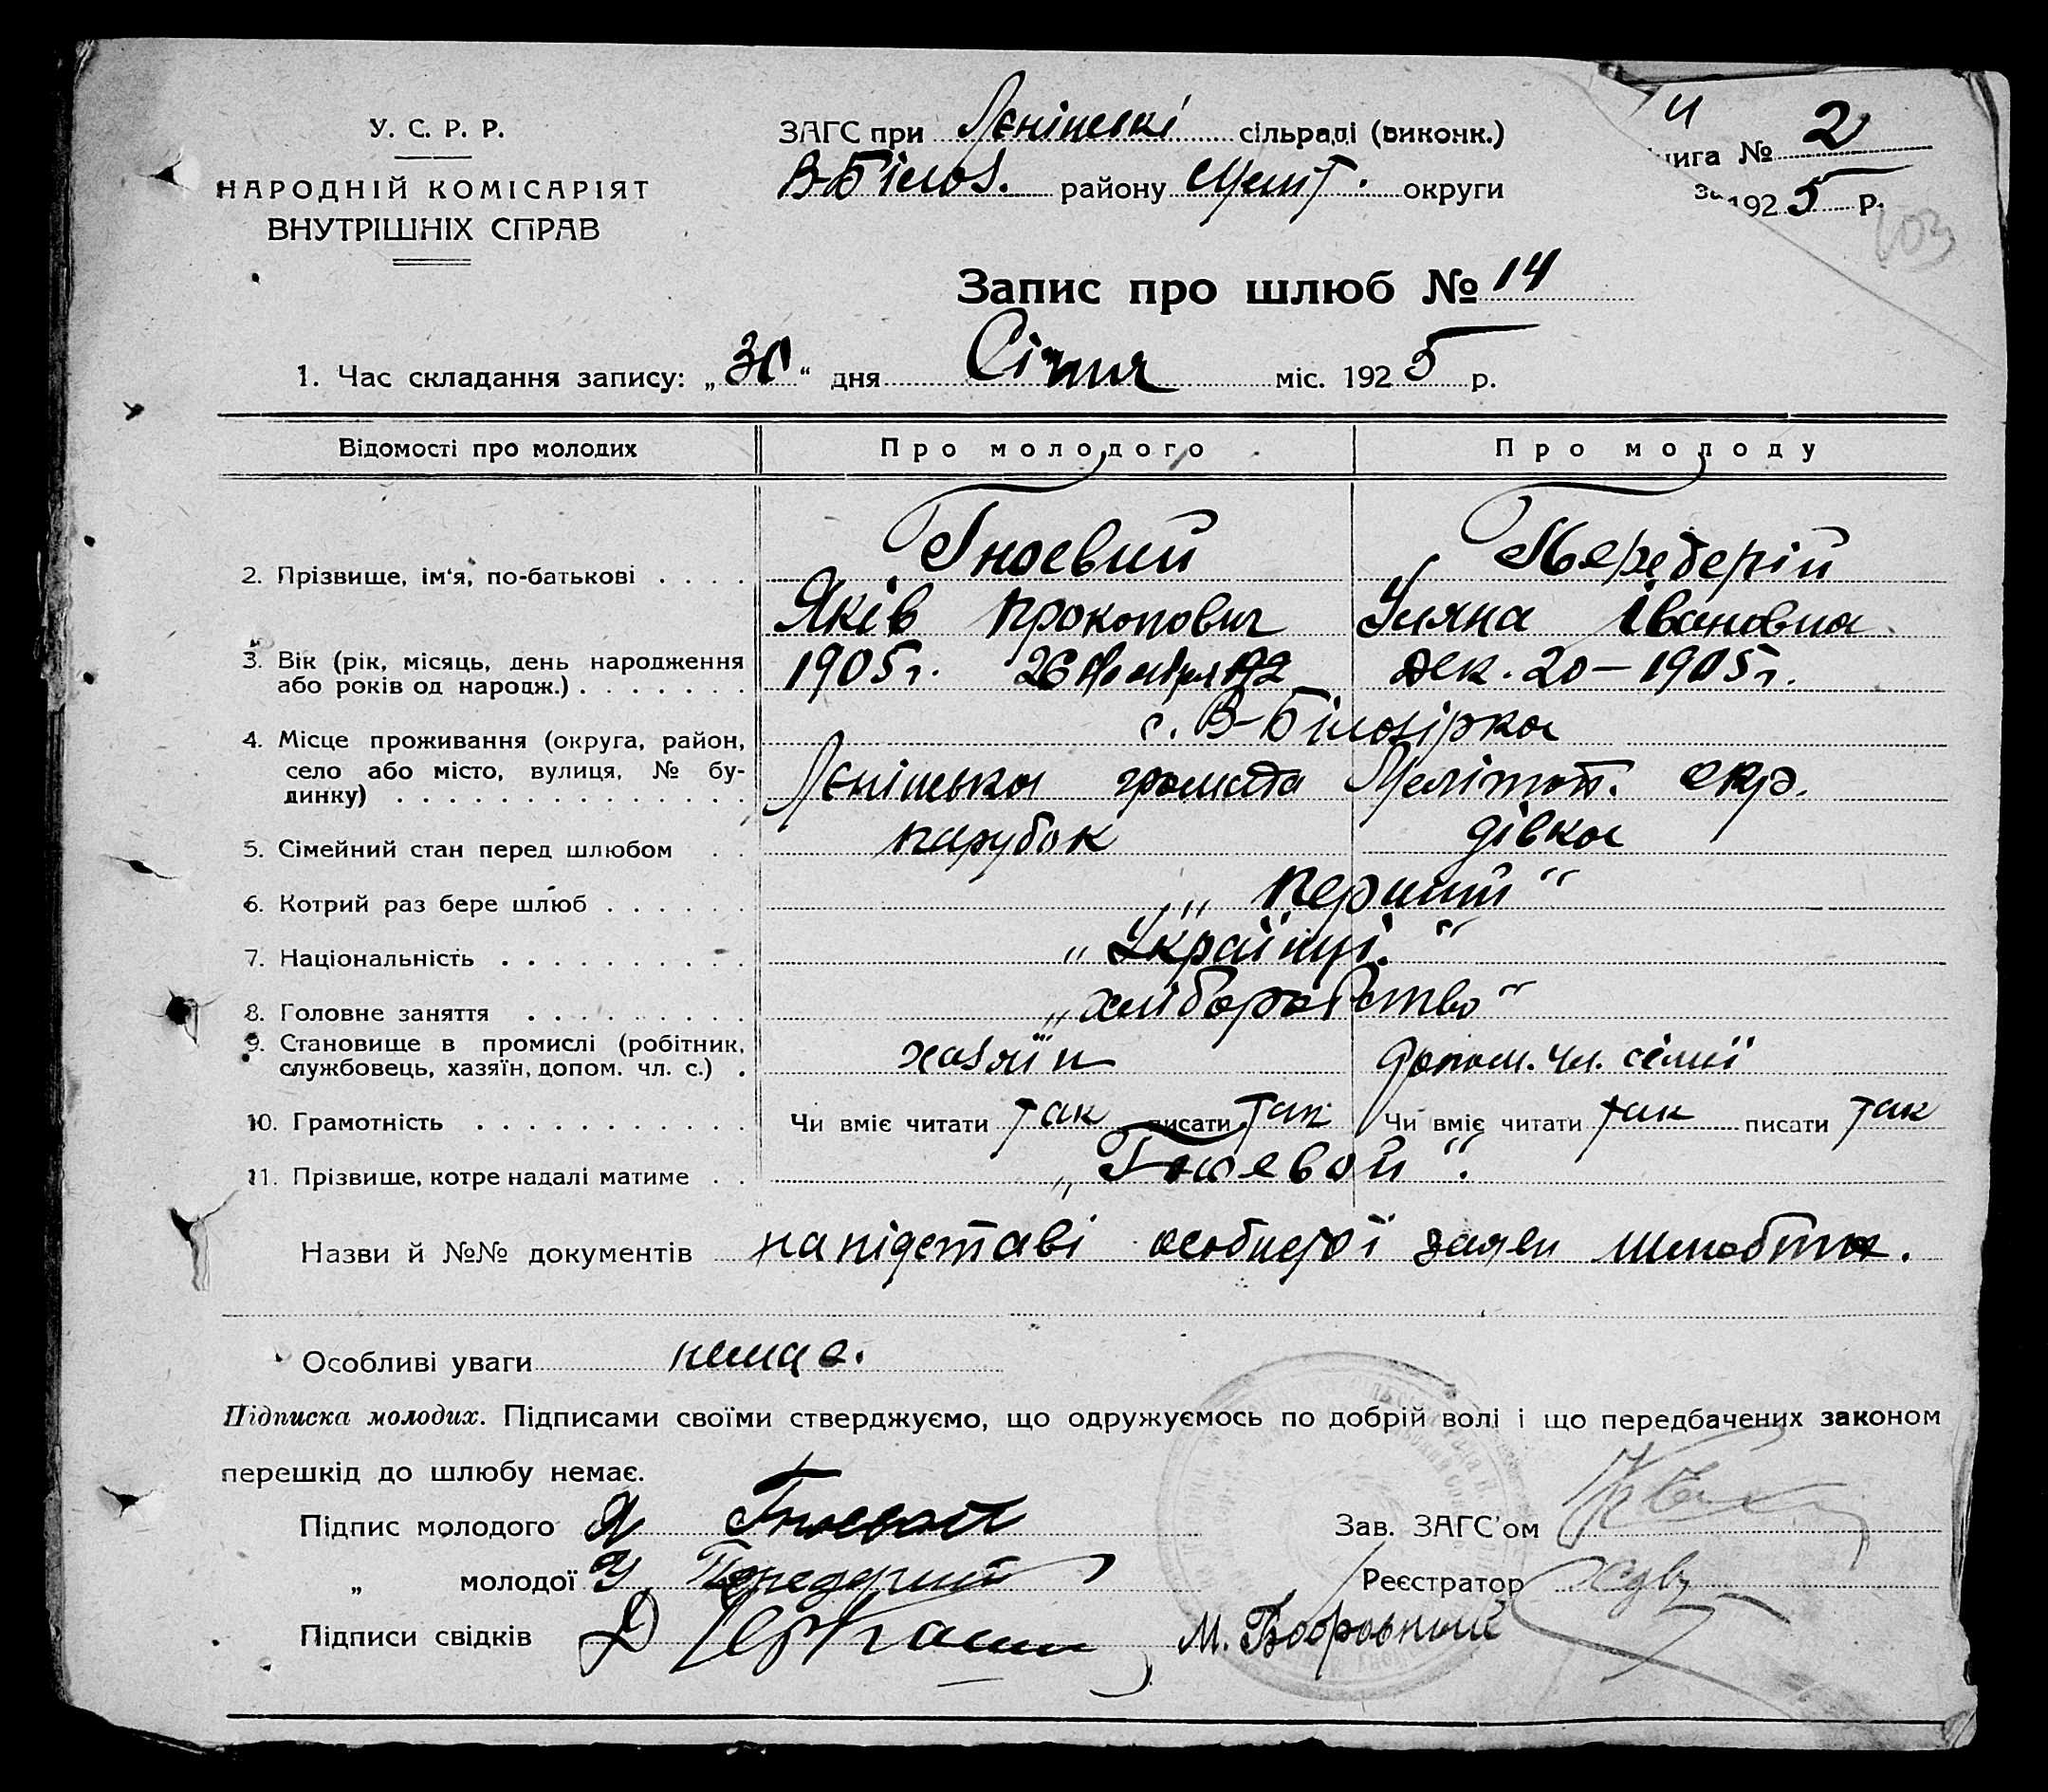 У. С. Р. Р.
НАРОДНІЙ КОМІСАРІЯТ
ВНУТРІШНІХ СПРАВ
ЗАГС при Ленінські сільраді (виконк.)
В-Білоз. району Меліт. округи
нига № 2
за 1925 р.
103
Запис про шлюб № 14
1. Час складання запису: „30“ дня Січня міс. 1925 р.
Відомості про молодих Про молодого Про молоду
2. Прізвище, ім‘я, по-батькові Гноєвий Передерій
Яків Прокопович Уляна Івановна
3. Вік (рік, місяць, день народження або років од народж.) 1905 г. 26 дек. 20 – 1905 г.
с. В-Білозірка
4. Місце проживання (округа, район, село або місто, вулиця, № будинку) Ленінська громада Мелітоп. окр.
5. Сімейний стан перед шлюбом парубок дівка
6. Котрий раз бере шлюб „перший“
7. Національність „Українці.“
8. Головне заняття „хліборобство“
9. Становище в промислі (робітник, службовець, хазяїн, допом. чл. с.) хазяїн допом. чл. сімї
10. Грамотність Чи вміє читати так писати так Чи вміє читати так писати так
11. Прізвище, котре надалі матиме „Гноевой“.
Назви й №№ документів на підставі особистої заяви
Особливі уваги немає.
Підписка молодих. Підписами своїми стверджуємо, що одружуємось по добрій волі і що передбачених законом
перешкід до шлюбу немає.
Підпис молодого Я Гноевой Зав. ЗАГС'ом
„ молодої У Передерий Реєстратор
Підписи свідків М. Бобровный